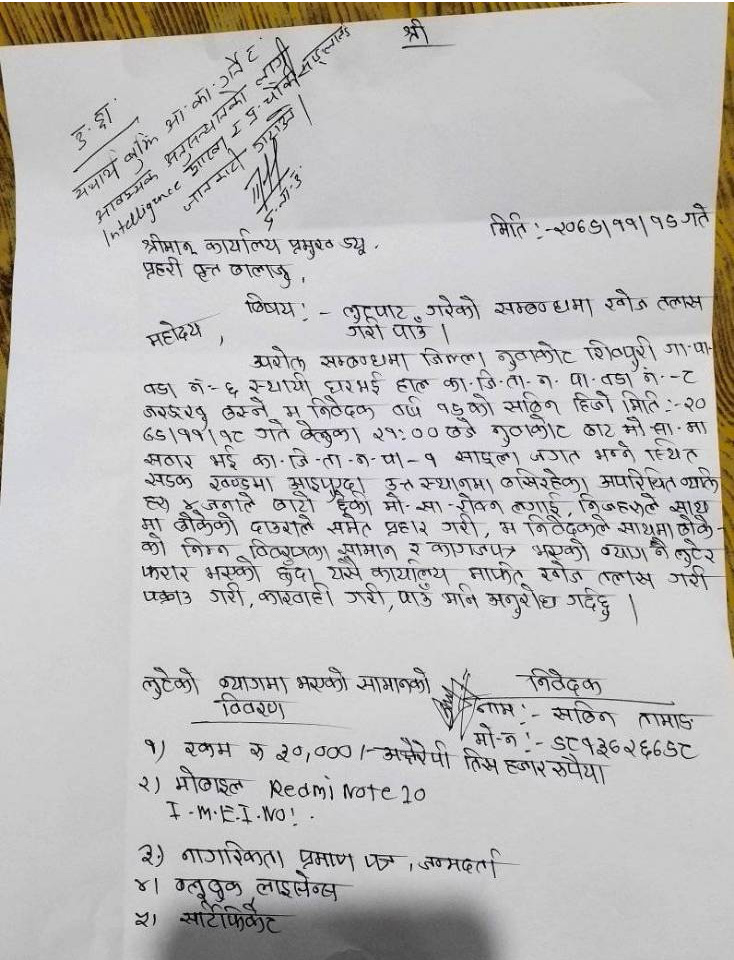 श्री
उ.द्दा.
यथार्थ बुझि आ.का. गर्ने र
आवश्यक अनुसन्धानको लागी
Intelligence शाखा र प्र. चौकी
जानकारी गराउने ।
मिति :- २०७९।११।१९ गते
श्रीमान् कार्यालय प्रमुख ज्यू.
प्रहरी वृत्त बालाजु,
बिषय :- लुटपाट गरेको सम्बन्धमा खोज तलास
गरी पाउँ ।
महोदय,
उपरोक्त सम्बन्धमा जिल्ला नुवाकोट शिवपुरी गा.पा.
वडा नं.- ६ स्थायी घरभई हाल का.जि.ता.न.पा. वडा नं.-८
बस्ने म निवेदक वर्ष १९ को सबिन हिजो मिति :- २०
७९।११।१८ गते बेलुका २१:०० बजे नुवाकोट बाट मो.सा. मा
सवार भई का.जि.ता.न.पा-१ साङ्गला जगात भन्ने स्थित
सडक खण्डमा आइपुग्दा उक्त स्थानमा बसिरहेका अपरिचित व्यक्ति
हरु ४ जनाले बाटो छेकी मो.सा. रोक्न लगाई, निजहरुले साथ
मा बोकेको दाउराले समेत प्रहार गरी, म निवेदकले साथमा बोके-
को निम्न विवरणका सामान र कागजपत्र भएको ब्याग नै लुटेर
फरार भएको हुँदा यसै कार्यालय मार्फत खोज तलास गरी
पक्राउ गरी, कारवाही गरी, पाउँ भनि अनुरोध गर्दछु ।
लुटेको ब्यागमा भएको सामानको
विवरण
निवेदक
नाम :- सबिन तामाङ
मो.न :- ९८१३६२६७९८
१) रकम रु ३०,०००/- अक्षेरुपी तिस हजार रुपैया
२) मोबाइल Redmi Note 10
I.M.E.I.NO:.
३) नागरिकता प्रमाण पत्र, जन्मदर्ता
४। ब्लूबुक लाइसेन्स
५। सार्टिफिकेट